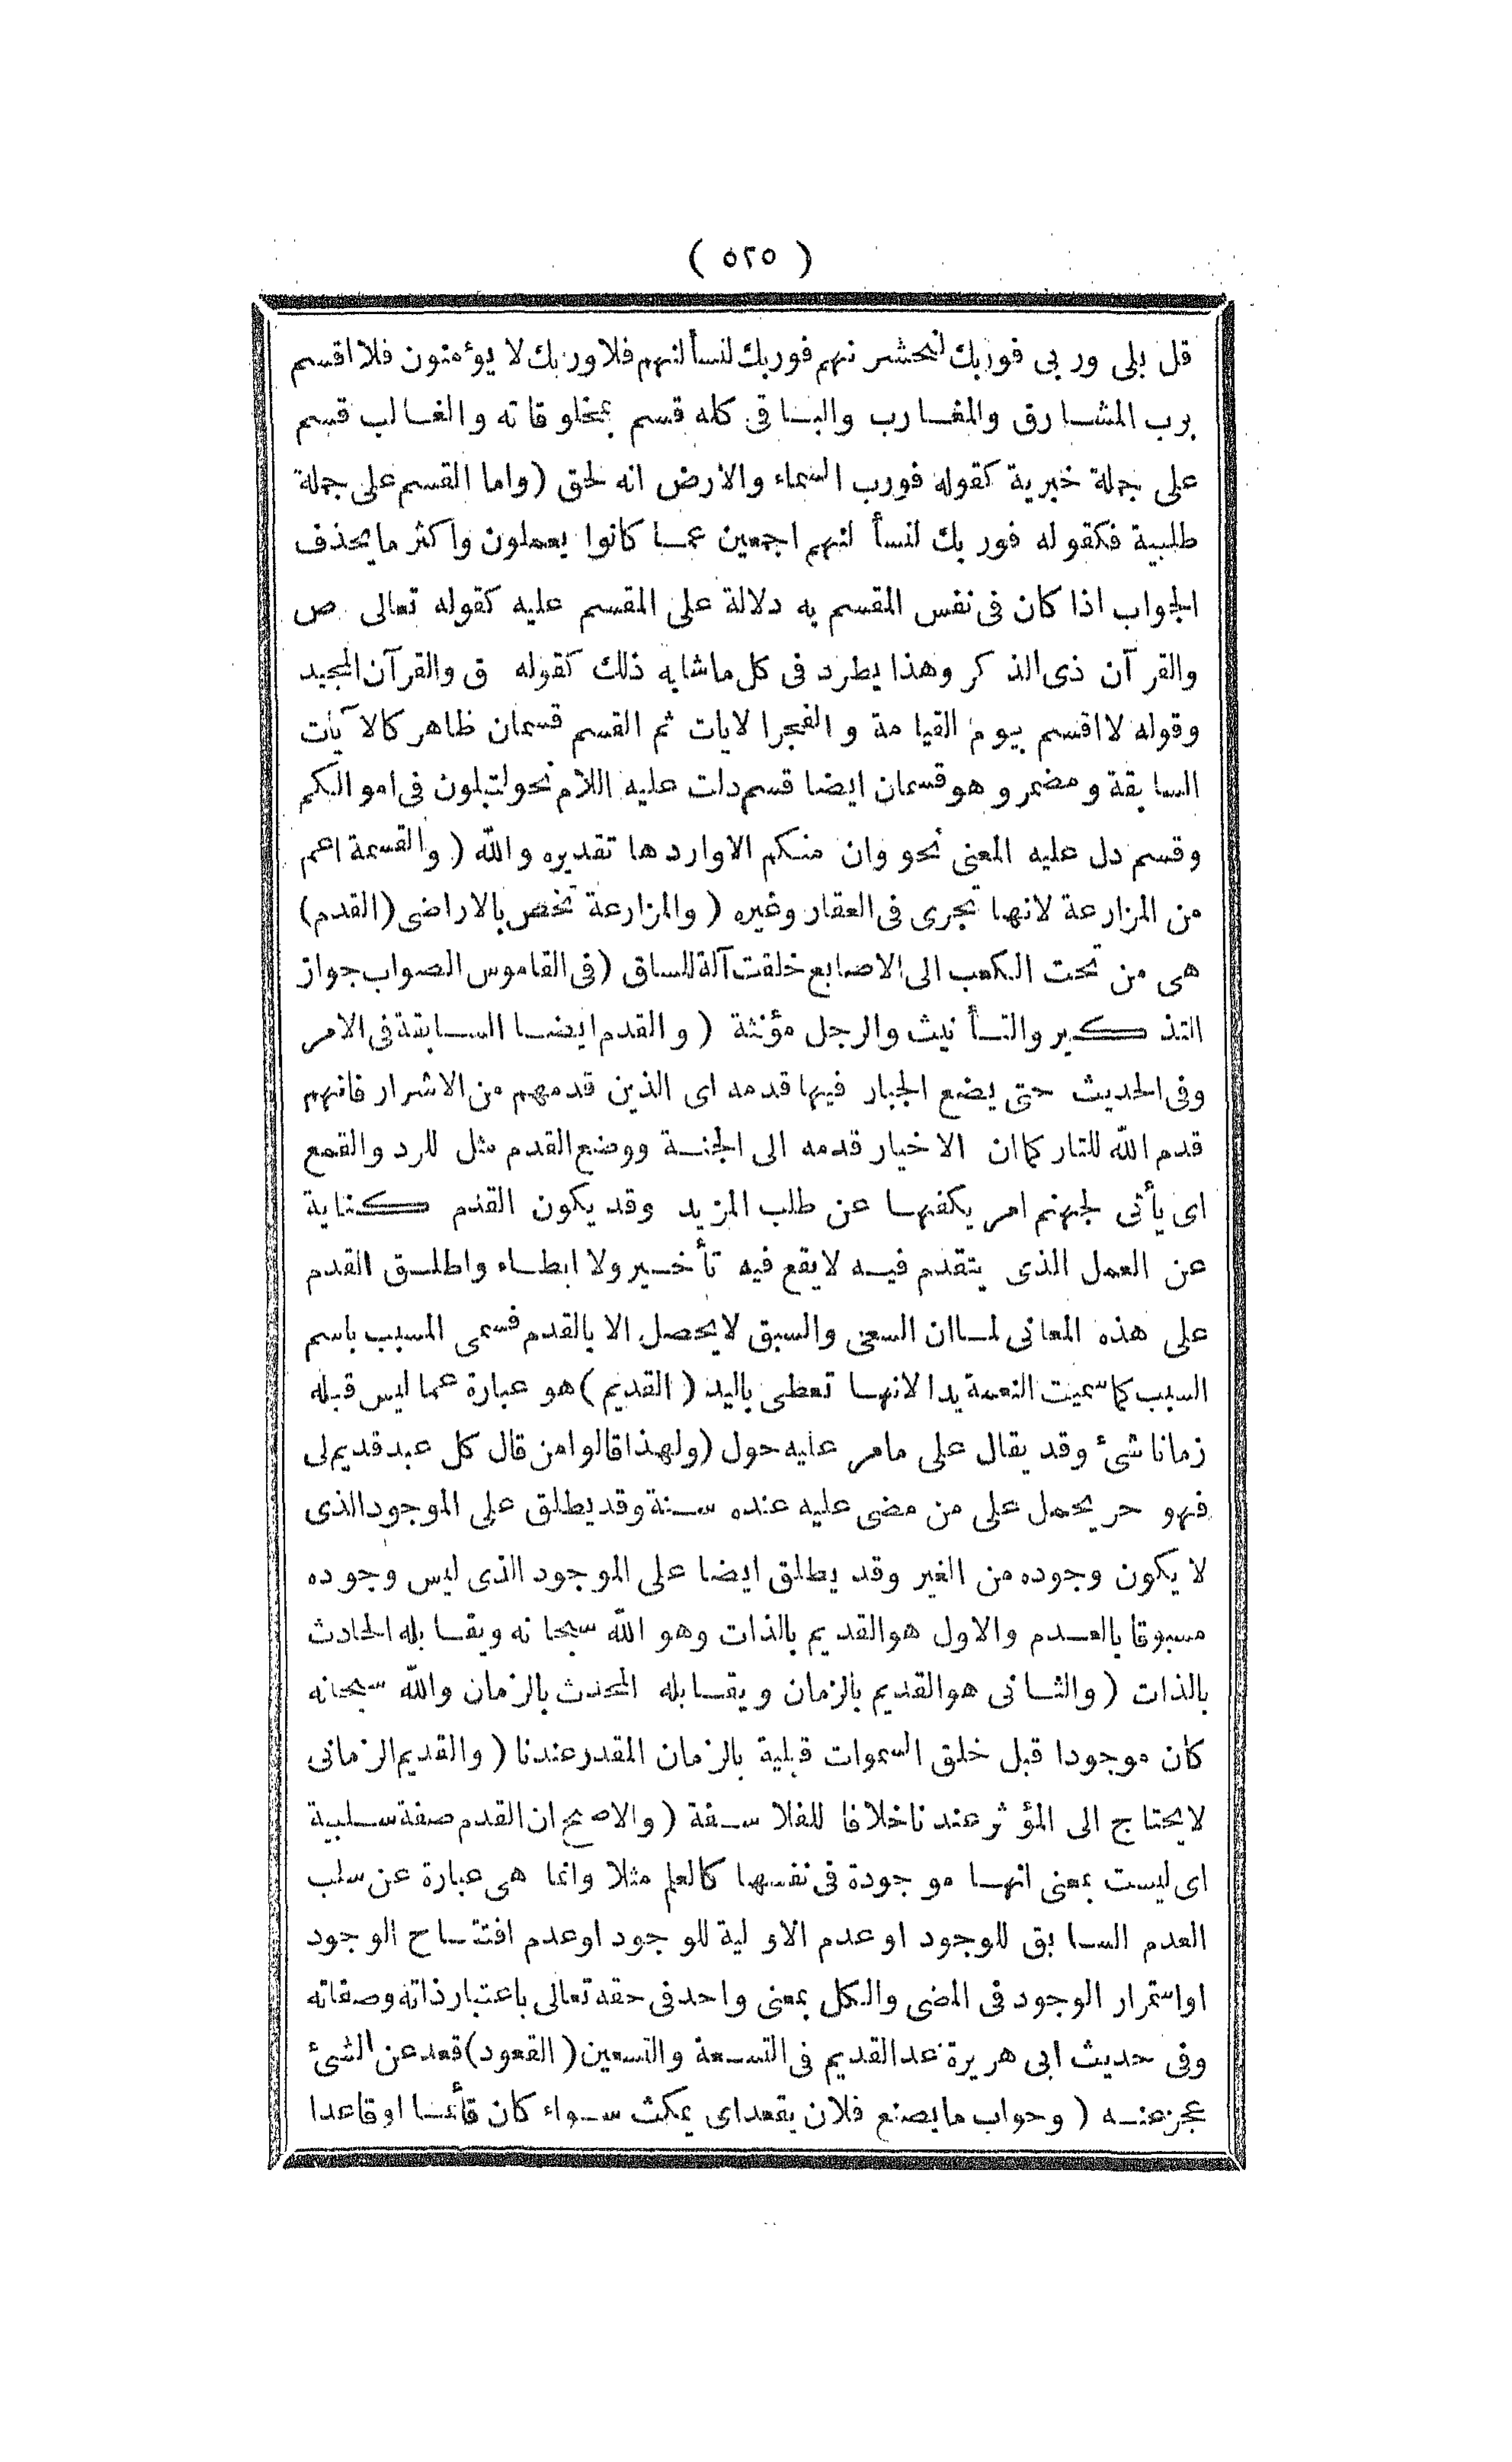 ( ٥٢٥ )
قل بلى وربى فوربك لنحشرنهم فوربك لنسألنهم فلا وربك لا يؤمنون فلا اقسم
برب المشارق والمغارب والباقى كله قسم بمخلوقاته والغالب قسم
على جملة خبرية كقوله فورب السماء والارض انه لحق (واما القسم على جملة
طلبية فكقوله فوربك لنسألنهم اجمعين عما كانوا يعملون واكثر ما يحذف
الجواب اذا كان فى نفس المقسم به دلالة على المقسم عليه كقوله تعالى ص
والقرآن ذى الذكر وهذا يطرد فى كل ما شابه ذلك كقوله ق والقرآن المجيد
وقوله لا اقسم بيوم القيامة والفجر الايات ثم القسم قسمان ظاهر كالآيات
السابقة ومضمر وهو قسمان ايضا قسم دلت عليه اللام نحو لتبلون فى اموالكم
وقسم دل عليه المعنى نحو وان منكم الا واردها تقديره والله (والقسمة اعم
من المزارعة لانها تجرى فى العقار وغيره (والمزارعة تخص بالاراضى (القدم)
هى من تحت الكعب الى الاصابع خلقت آلة للساق (فى القاموس الصواب جواز
التذكير والتأنيث والرجل مؤنثة (والقدم ايضا السابقة فى الامر
وفى الحديث حتى يضع الجبار فيها قدمه اى الذين قدمهم من الاشرار فانهم
قدم الله للنار كما ان الاخيار قدمه الى الجنة ووضع القدم مثل للرد والقمع
اى يأتى لجهنم امر يكفها عن طلب المزيد وقد يكون القدم كناية
عن العمل الذى يتقدم فيه لا يقع فيه تأخير ولا ابطاء واطلق القدم
على هذه المعانى لما ان السعى والسبق لا يحصل الا بالقدم فسمى المسبب باسم
السبب كما سميت النعمة يدا لانها تعطى باليد (القديم) هو عبارة عما ليس قبله
زمانا شئ وقد يقال على ما مر عليه حول (ولهذا قالوا من قال كل عبد قديم لى
فهو حر يحمل على من مضى عليه عنده سنة وقد يطلق على الموجود الذى
لا يكون وجوده من الغير وقد يطلق ايضا على الموجود الذى ليس وجوده
مسبوقا بالعدم والاول هو القديم بالذات وهو الله سبحانه ويقابله الحادث
بالذات (والثانى هو القديم بالزمان ويقابله المحدث بالزمان والله سبحانه
كان موجودا قبل خلق السموات قبلية بالزمان المقدر عندنا (والقديم الزمانى
لا يحتاج الى المؤثر عندنا خلافا للفلاسفة (والاصح ان القدم صفة سلبية
اى ليست بمعنى انها موجودة فى نفسها كالعلم مثلا وانما هى عبارة عن سلب
العدم السابق للوجود او عدم الاولية للوجود او عدم افتتاح الوجود
او استمرار الوجود فى المضى والكل بمعنى واحد فى حقه تعالى باعتبار ذاته وصفاته
وفى حديث ابى هريرة عد القديم فى التسعة والتسعين (القعود) قعد عن الشئ
عجز عنه (وجواب ما يصنع فلان يقعد اى يمكث سواء كان قائما او قاعدا